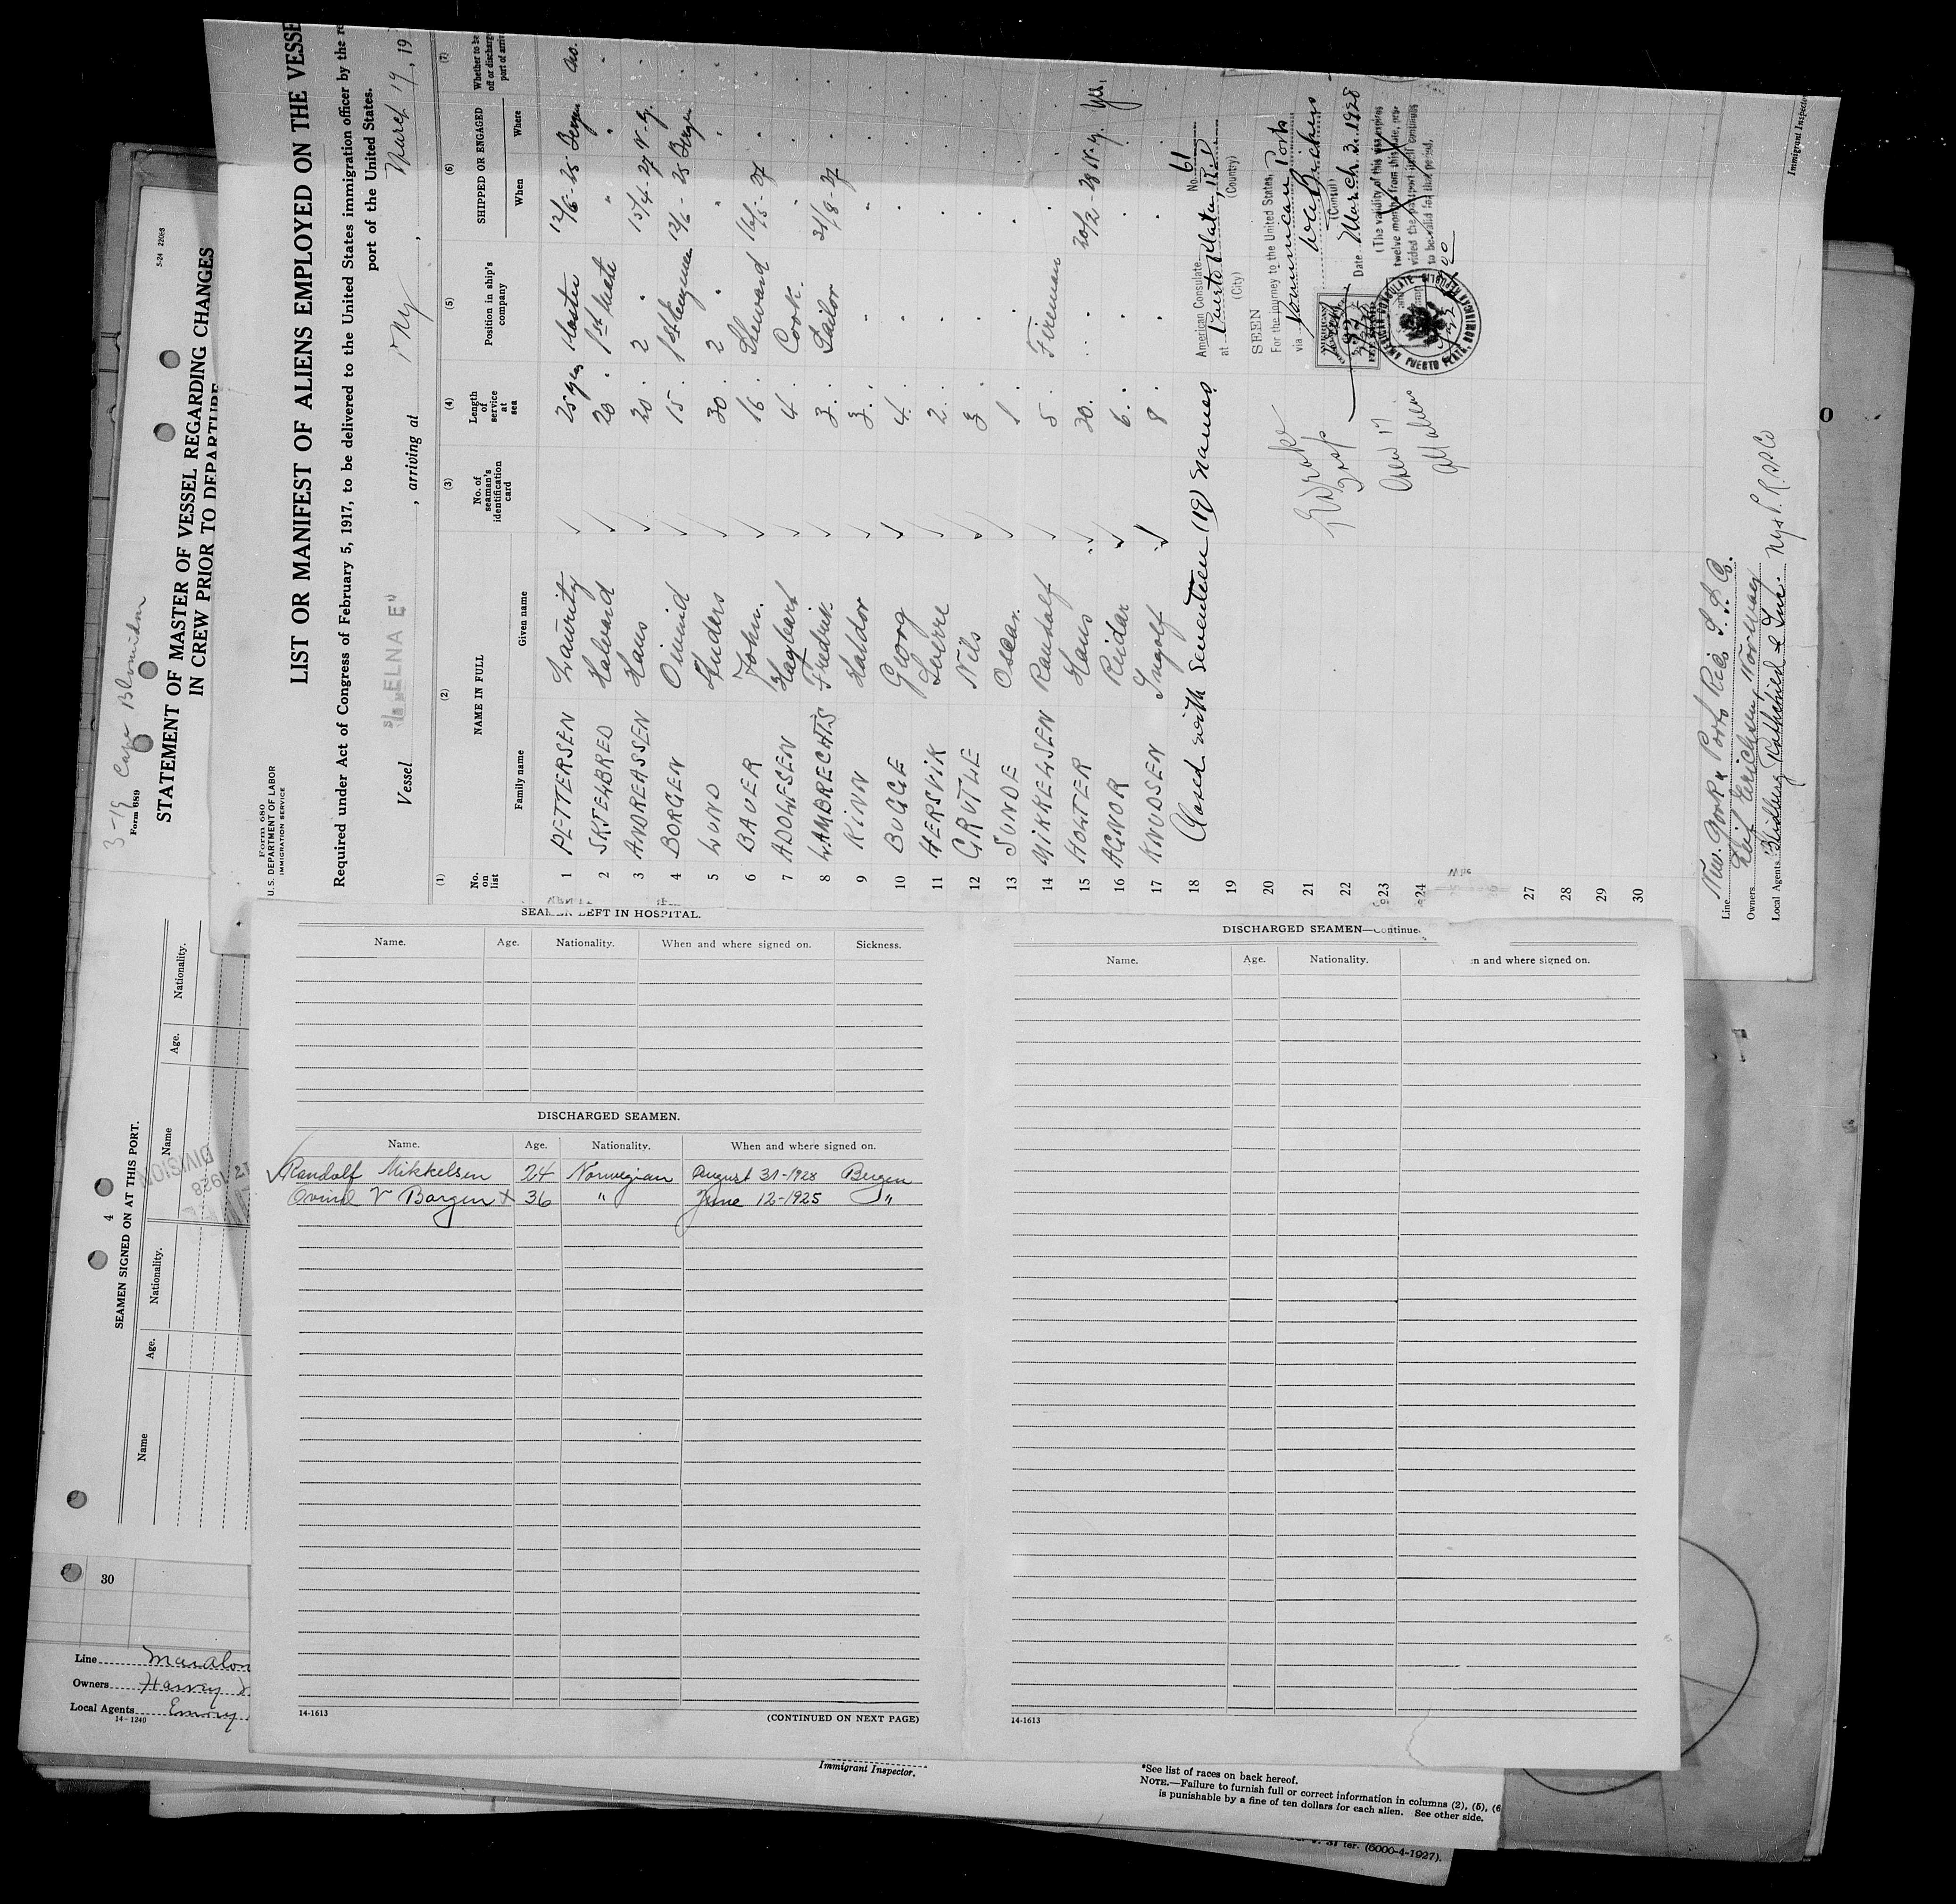 3-19 Cape Blomidon
Form 689
5-24 22068
STATEMENT OF MASTER OF VESSEL REGARDING CHANGES
IN CREW PRIOR TO DEPARTURE
Form 680
U.S. DEPARTMENT OF LABOR
IMMIGRATION SERVICE
LIST OR MANIFEST OF ALIENS EMPLOYED ON THE VESSE
Required under Act of Congress of February 5, 1917, to be delivered to the United States immigration officer by the re
port of the United States.
Vessel S/S "ELNA E" , arriving at NY , March 19, 19
(1) (2) (3) (4) (5) (6) (7)
No. on list
NAME IN FULL
Family name Given name
No. of seaman's identification card
Length of service at sea
Position in ship's company
SHIPPED OR ENGAGED
When Where
Whether to be off or discharg port of arriv
1 PETTERSEN Lauritz 25 yrs Master 12/6-25 Bergen no.
2 SKJELBRED Halvard 20 " 1st Mate " "
3 ANDREASSEN Hans 20 . 2 " 15/4-27 N.Y.
4 BORGEN Oivind 15 . 1st Engineer 12/6-25 Bergen
5 LUND Anders 30 . 2 " " "
6 BAUER John. 16 . Steward 16/5-27
7 ADOLFSEN Hagbart 4 . Cook. "
8 LAMBRECHTS Fredrik 3 . Sailor 31/8-27
9 KINN Haldor 3 . " "
10 BUGGE Georg 4 .
11 HERSVIK Sverre 2 .
12 GRUTLE Nils 3 .
13 SUNDE Oscar. 1 .
14 MIKKELSEN Randolf 5 . Fireman
15 HOLTER Hans 30 . 20/2-28 N.Y. yes.
16 AGNOR Reidar 6 .
17 KNUDSEN Ingolf 8 .
18 Closed with Seventeen (17) names
19
20
21
22
23
24
27
28
29
30
American Consulate No. 61
at Puerto Plata, R.D.
(City) (County)
SEEN
For the journey to the United States,
via Dominican Ports
(Consul)
Date March 3. 1928
(The validity of this visa expires
twelve months from this date, pro-
vided the passport itself continues
to be valid for that period.
AMERICAN CONSULATE
PUERTO PLATA, DOMINICAN REPUBLIC
Crew 17
all aliens
Line New York & Porto Rico S. S. Co.
Owners Leif Erichsen, Norway
Local Agents
Immigrant Inspector
SEAMEN LEFT IN HOSPITAL.
Name. Age. Nationality. When and where signed on. Sickness.
DISCHARGED SEAMEN.
Name. Age. Nationality. When and where signed on.
Randolf Mikkelsen 24 Norwegian August 31-1928 Bergen
Ovind V Borgen x 36 " June 12-1925 "
14-1613
(CONTINUED ON NEXT PAGE)
DISCHARGED SEAMEN—Continue
Name. Age. Nationality. n and where signed on.
14-1613
4
SEAMEN SIGNED ON AT THIS PORT.
Name Age. Nationality. Name Age. Nationality.
DIVISION
1928
30
Line
Owners Harvey
Local Agents
14-1240
Immigrant Inspector.
*See list of races on back hereof.
NOTE.—Failure to furnish full or correct information in columns (2), (5), (6
is punishable by a fine of ten dollars for each alien. See other side.
ter. (6000-4-1927).